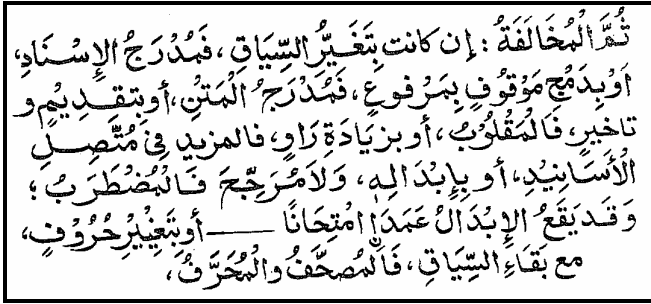 ثُمَّ الْمُخَالَفَةُ: إن كانت بِتَغَيُّرِ السِّيَاقِ، فَمُدْرَجُ الإِسْنَادِ،
اَوْ بِدَمْجِ مَوْقُوفٍ بِمَرْفُوعٍ، فَمُدْرَجُ الْمَتْنِ، أو بتقديمٍ و
تاخيرٍ، فَالْمَقْلُوبُ، أو بزيَادَةِ رَاوٍ، فالمزيد فِيْ مُتَّصِلِ
الْأَسَانِيْدِ، أو بِإِبْدَالِهِ، وَلَا مُرَجِّحَ فَالْمُضْطَرَبُ؛
وَقَد يَقَعُ الإِبْدَالُ عَمَدًا امْتِحَانًا ــــــ أو بِتَغْيِيْرِ حُرُوفٍ،
مع بَقَاءِ السِّيَاقِ، فَالْمُصَحَّفُ والْمُحَرَّفُ،